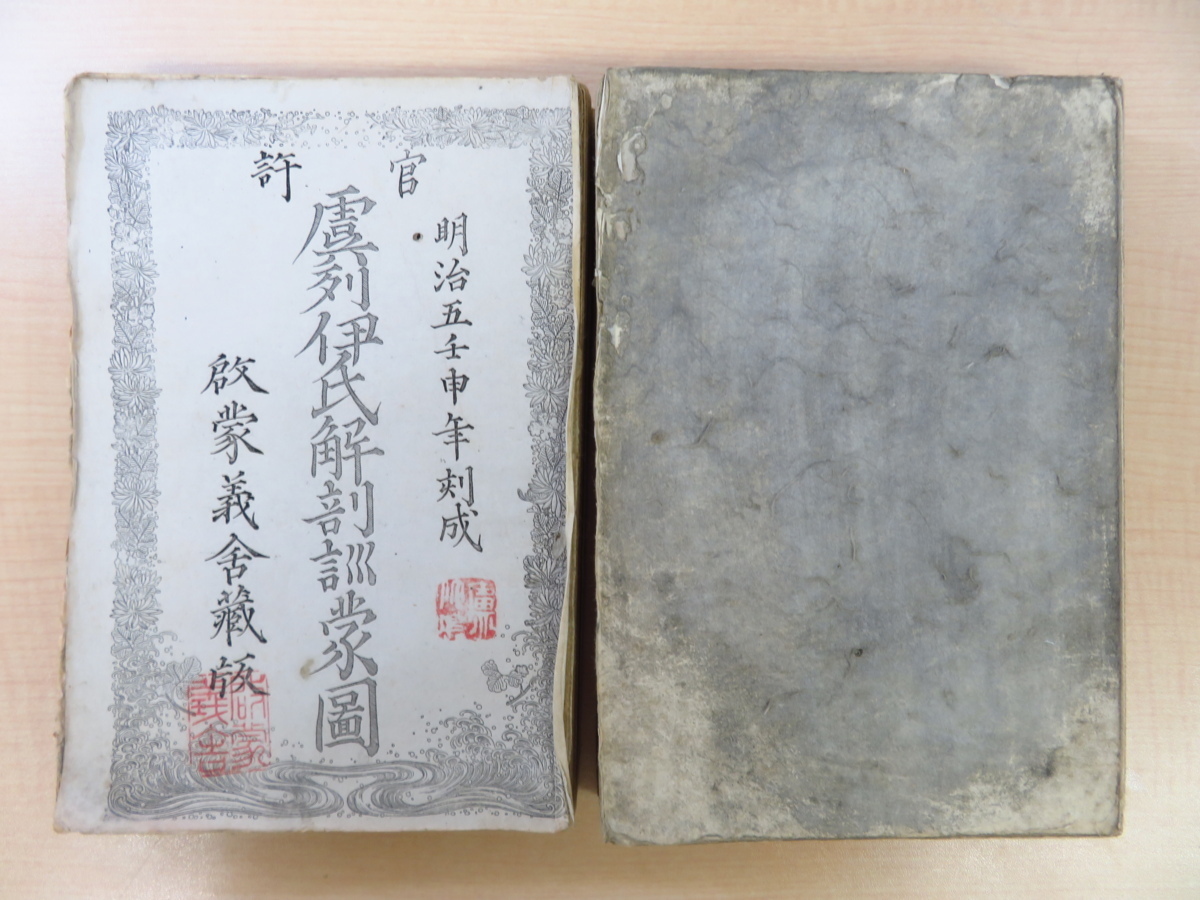 官許
明治五壬申年刻成
虞列伊氏解剖訓蒙圖
啟蒙義舍藏版
啟蒙義舍